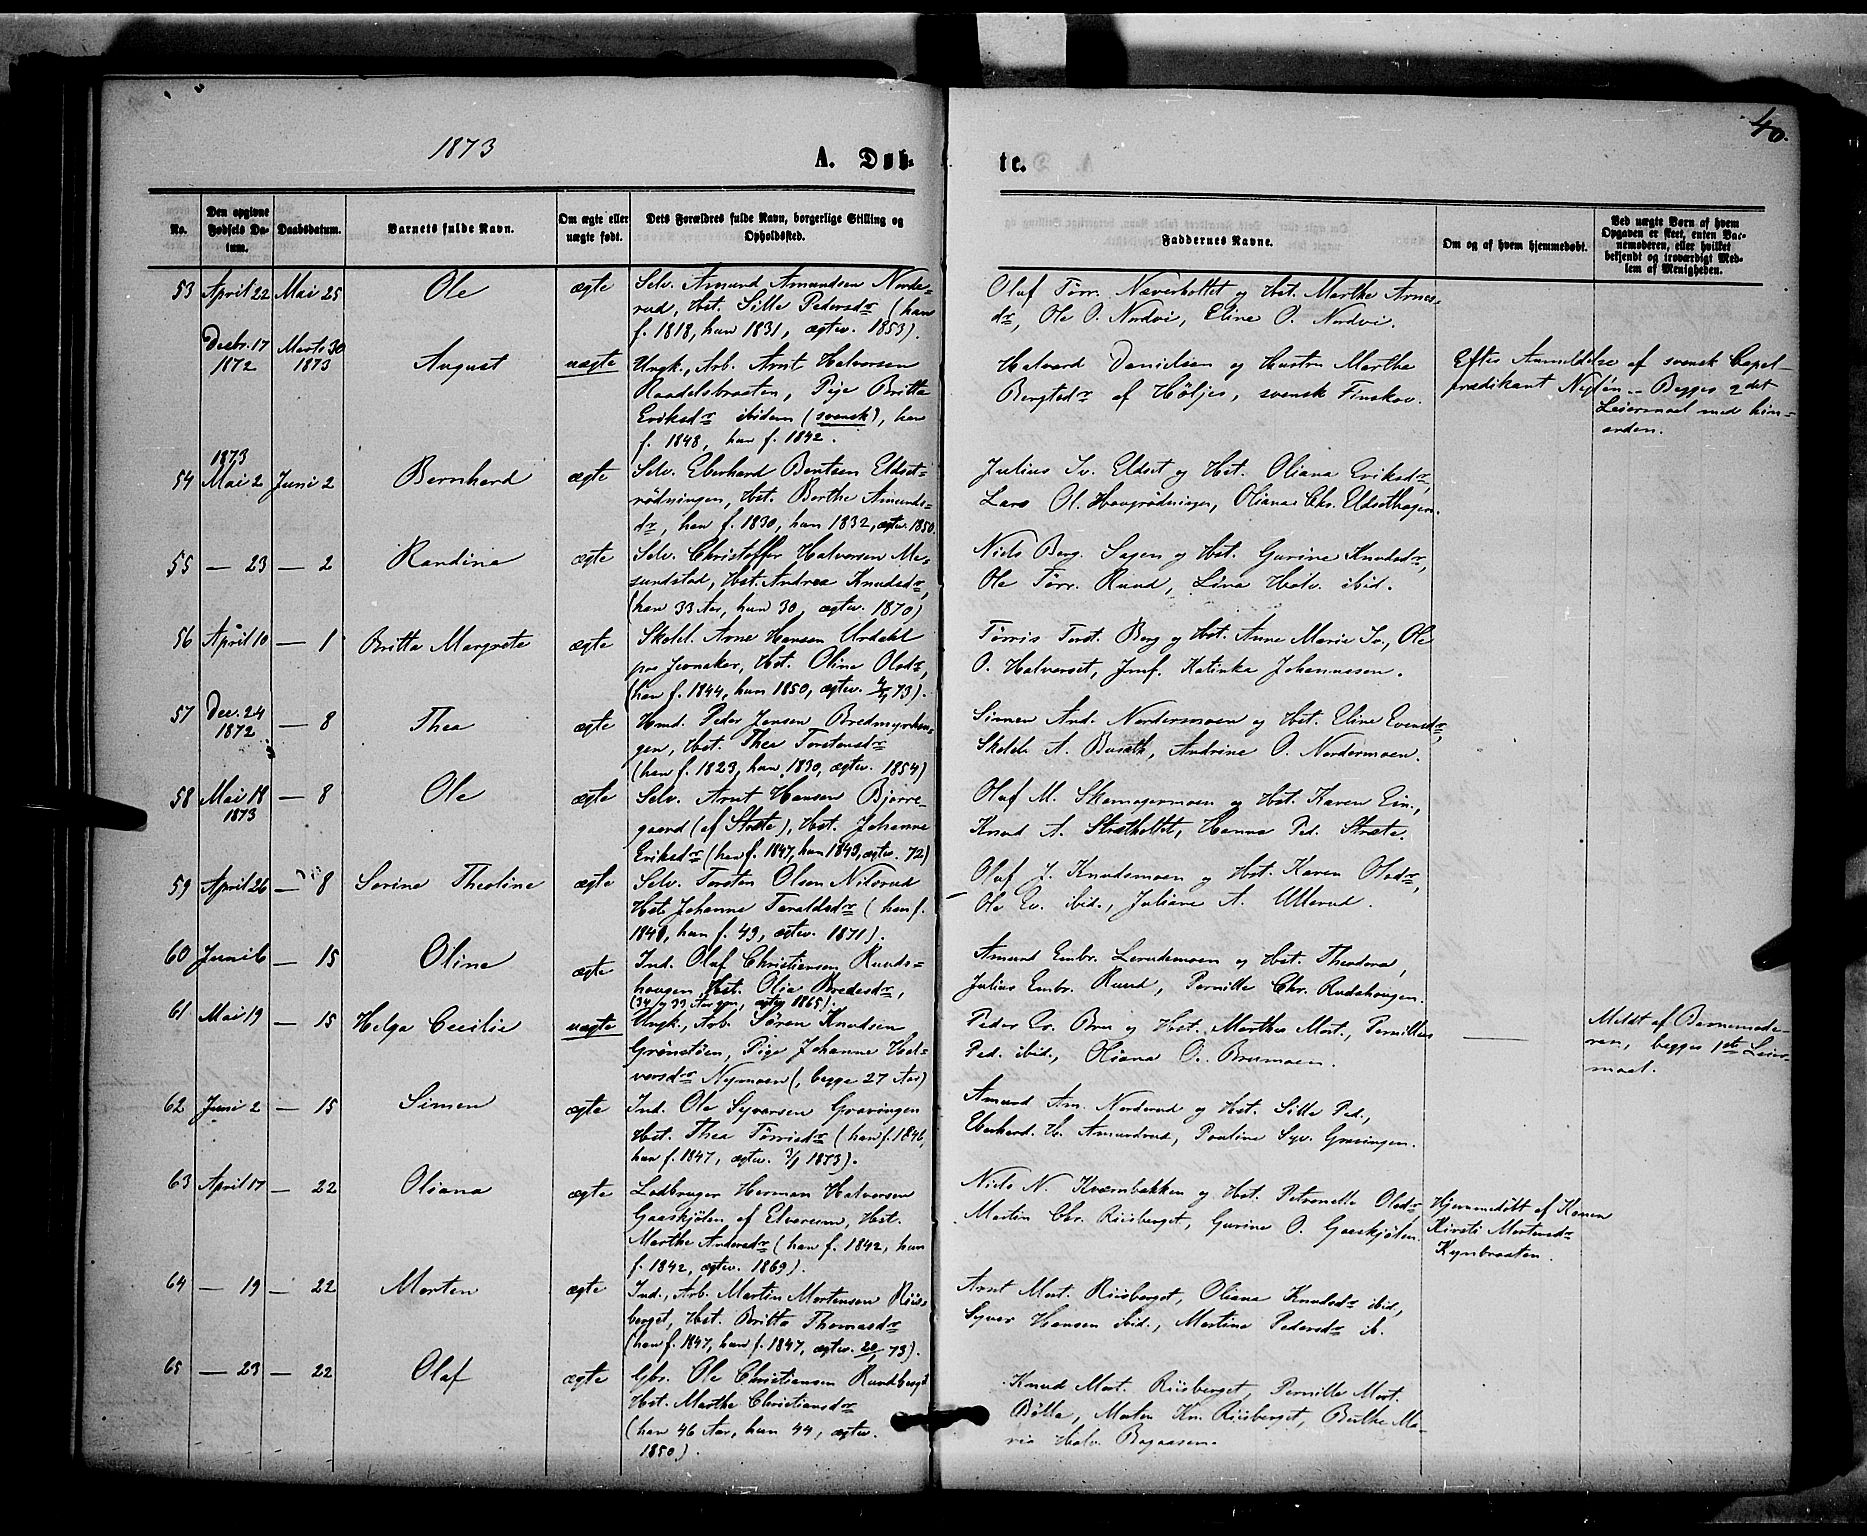 1873
A. Døb-
te.
40.
No.
Den opgivne Fødsels Datum.
Daabsdatum.
Barnets fulde Navn.
Om ægte eller uægte født.
Dets Forældres fulde Navn, borgerlige Stilling og Opholdssted.
Faddernes Navne.
Om og af hvem hjemmedøbt.
Ved uægte Børn af hvem Opgaven er skeet, enten Barnemoderen, eller hvilket bekjendt og troværdigt Medlem af Menigheden.
53 April 22 Mai 25 Ole ægte Selv. Amund Amundsen Norde-
rud, Hst. Sille Pedersdr (han
f. 1818, hun 1831, ægtev. 1853).
Olaf Törr. Næverholtet og Hst. Marthe Arnes-
dr, Ole O. Nordvi, Eline O. Nordvi.
Decbr. 17 1872 Marts 30 1873 August uægte Ungk., Arb. Arnt Halvorsen
Raadelsbraaten, Pige Britta
Eriksdr ibidem (svensk), han
f. 1848, hun f. 1842.
Halvard Danielsen og Hustru Martha
Bengtsdr af Höljes, svensk Finskov.
Efter Anmeldelse af svensk Capel-
prædikant Nylén. Begges 2det
Leiermaal med hin-
anden.
1873
54 Mai 2 Juni 2 Bernhard ægte Selv. Eberhard Berntsen Eldset-
rödningen, Hst. Berthe Amunds-
dr, han f. 1830, hun 1832, ægtev. 1850.
Julius Iv. Eldset og Hst. Oliana Eriksdr,
Lars Ol. Haugrödningen, Oliana Chr. Eldsethagen.
55 — 23 — 2 Randine ægte Selv. Christoffer Halvorsen Me-
sundstad, Hst. Andrea Knudsdr,
(han 33 Aar, hun 30, ægtev. 1870)
Niels Berg. Sagen og Hst. Gurine Knudsdr,
Ole Törr. Ruud, Lina Halv. ibid.
56 April 10 — 1 Britta Margrete ægte Skolel. Arne Hansen Urdahl
paa Jevnaker, Hst. Oline Olsdr,
(han f. 1844, hun 1850, ægtev. 4/1 73).
Törris Torst. Berg og Hst. Anne Marie Iv., Ole
O. Halvorset, Jmf. Katinka Johannesen.
57 Dec. 24 1872 — 8 Thea ægte Hmd. Peder Jensen Bredmyrhau-
gen, Hst. Thea Torstensdr
(han f. 1823, hun 1830, ægtev. 1854)
Simen And. Nordermoen og Hst. Eline Evensdr,
Skolel. A. Burath, Andrine O. Nordermoen.
58 Mai 18 1873 — 8 Ole ægte Selv. Arnt Hansen Bjørre-
gaard (af Stræte), Hst. Johanne
Eriksdr (han f. 1847, hun 1843, ægtev. 72)
Olaf M. Skamagermoen og Hst. Karen Ein.,
Knud A. Strætholtet, Hanna Ped. Stræte.
59 April 26 — 8 Serine Theoline ægte Selv. Torsten Olsen Nilsrud
Hst. Johanne Taraldsdr (han f.
1848, hun f. 49, ægtev. 1871).
Olaf J. Knudsmoen og Hst. Karen Olsdr,
Ole Ev. ibid., Juliane A. Ullerud.
60 Juni 6 — 15 Oline ægte Ind. Olaf Christiansen Ruuds-
haugen, Hst. Olia Bredesdr,
(34 og 33 Aar gm, ægtev. 1865).
Amund Embr. Lerudemoen og Hst. Theodora,
Julius Embr. Ruud, Pernille Chr. Rudshaugen.
61 Mai 19 — 15 Helga Cecilie uægte Ungk., Arb. Søren Knudsen
Grönstöen, Pige Johanne Hal-
vorsdr Nymoen (, begge 27 Aar)
Peder Ev. Bru og Hst. Marthea Mort., Pernille
Ped. ibid., Oliana O. Brumoen.
Meldt af Barnemode-
ren, begges 1ste Leier-
maal.
62 Juni 2 — 15 Simen ægte Ind. Ole Syversen Gravingen
Hst. Thea Törrisdr (han f. 1846,
hun f. 1847, ægtev. 3/1 1873).
Amund Am. Norderud og Hst. Sille Ped.,
Eberhard H. Amundrud, Pauline Syv. Gravingen.
63 April 17 — 22 Oliana ægte Ladbruger Herman Halvorsen
Gaaskjölen af Elverum, Hst.
Marthe Andersdr (han f. 1842, hun
f. 1842, ægtev. 1869).
Niels N. Kværnbakken og Hst. Petronelle Olsdr,
Martin Chr. Riisberget, Gurine O. Gaaskjölen.
Hjemmedöbt af Karen
Kirsti Mortensdr
Kynbraaten.
64 — 19 — 22 Morten ægte Ind., Arb. Martin Mortensen Riis-
berget, Hst. Britta Thomasdr
(han f. 1847, hun f. 1847, ægtev. 20/1 73).
Arnt Mort. Riisberget, Oliana Knudsdr ibid,
Syver Hansen ibid., Martine Pedersdr ib.
65 — 23 — 22 Olaf ægte Gbr. Ole Christiansen Rundberget
Hst. Marthe Christiansdr
(han 46 Aar, hun 44, ægtev.
1850).
Knud Mort. Riisberget, Pernille Mort.
Bölla, Morten Kn. Riisberget, Berthe Ma-
ria Halv. Bagaasen.